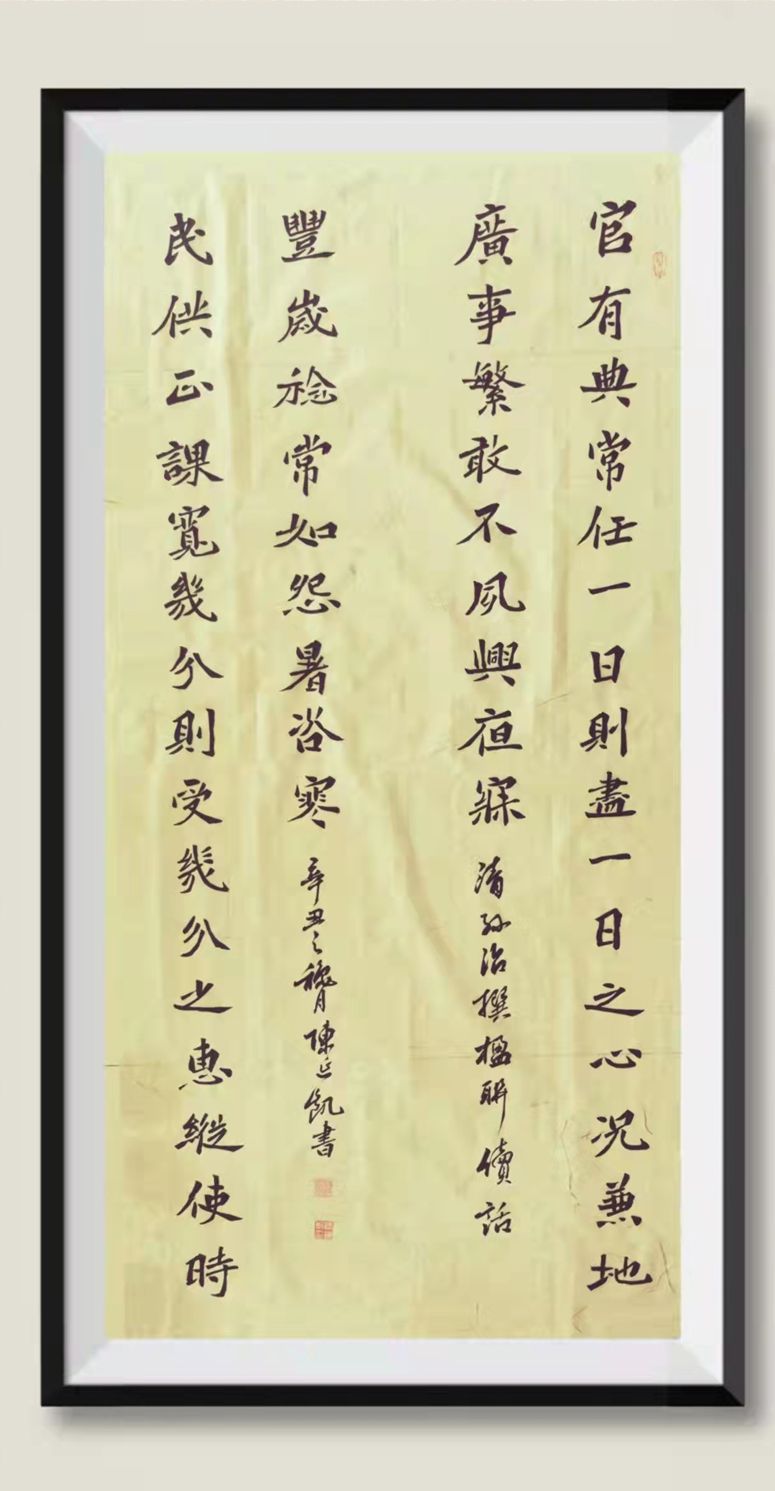 官有典常任一日則盡一日之心况兼地
廣事繁敢不夙興夜寐
清孫治撰楹聯續話
民供正課寬幾分則受幾分之惠縱使時
豐歲稔常如怨暑咨寒
辛丑之穐月陳延凱書